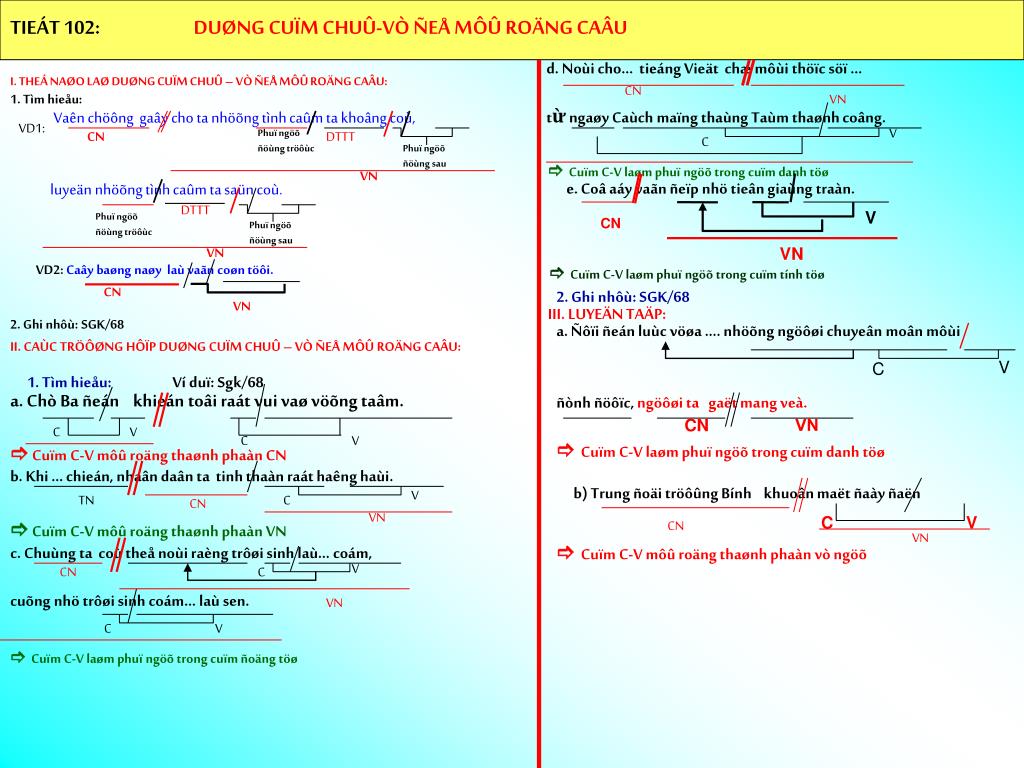 TIEÁT 102: DUØNG CUÏM CHUÛ-VÒ ÑEÅ MÔÛ ROÄNG CAÂU
I. THEÁ NAØO LAØ DUØNG CUÏM CHUÛ – VÒ ÑEÅ MÔÛ ROÄNG CAÂU:
1. Tìm hieåu:
Vaên chöông gaây cho ta nhöõng tình caûm ta khoâng coù,
VD1:
CN
Phuï ngöõ
ñöùng tröôùc
DTTT
Phuï ngöõ
ñöùng sau
VN
luyeän nhöõng tình caûm ta saün coù.
Phuï ngöõ
ñöùng tröôùc
DTTT
Phuï ngöõ
ñöùng sau
VN
VD2: Caây baøng naøy laù vaãn coøn töôi.
CN
VN
2. Ghi nhôù: SGK/68
II. CAÙC TRÖÔØNG HÔÏP DUØNG CUÏM CHUÛ – VÒ ÑEÅ MÔÛ ROÄNG CAÂU:
1. Tìm hieåu: Ví duï: Sgk/68
a. Chò Ba ñeán khieán toâi raát vui vaø vöõng taâm.
C V C V
⇨ Cuïm C-V môû roäng thaønh phaàn CN
b. Khi ... chieán, nhaân daân ta tinh thaàn raát haêng haùi.
TN CN C V
VN
⇨ Cuïm C-V môû roäng thaønh phaàn VN
c. Chuùng ta coù theå noùi raèng trôøi sinh laù... coám,
CN C V
cuõng nhö trôøi sinh coám... laù sen.
VN
C V
⇨ Cuïm C-V laøm phuï ngöõ trong cuïm ñoäng töø
d. Noùi cho... tieáng Vieät chæ môùi thöïc söï ...
CN
VN
từ ngaøy Caùch maïng thaùng Taùm thaønh coâng.
C V
⇨ Cuïm C-V laøm phuï ngöõ trong cuïm danh töø
e. Coâ aáy vaãn ñeïp nhö tieân giaùng traàn.
CN V
VN
⇨ Cuïm C-V laøm phuï ngöõ trong cuïm tính töø
2. Ghi nhôù: SGK/68
III. LUYEÄN TAÄP:
a. Ñôïi ñeán luùc vöøa .... nhöõng ngöôøi chuyeân moân môùi
C V
ñònh ñöôïc, ngöôøi ta gaët mang veà.
CN VN
⇨ Cuïm C-V laøm phuï ngöõ trong cuïm danh töø
b) Trung ñoäi tröôûng Bính khuoân maët ñaày ñaën
CN C V
VN
⇨ Cuïm C-V môû roäng thaønh phaàn vò ngöõ